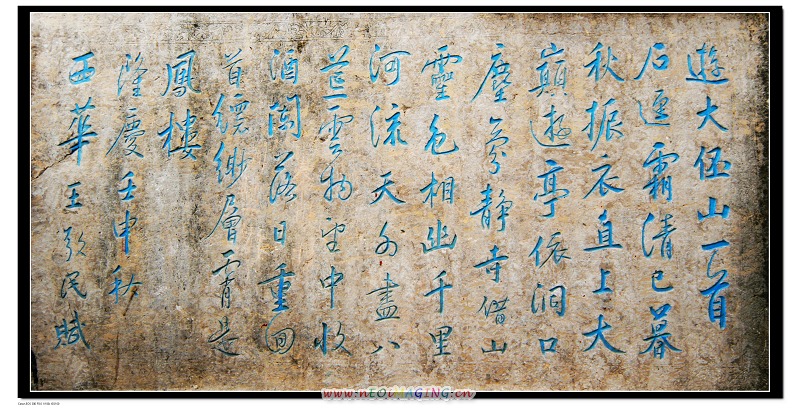 遊大伾山一首
石逕霜清已暮
秋振衣直上大
巔遊亭依洞口
塵氛静寺借山
靈色相幽千里
河流天外盡八
荒雲物望中收
酒闌落日重回
首縹緲層霄是
鳳樓
隆慶壬申秋
西華王敬民賦
www.nEOiMAGiNG.cn